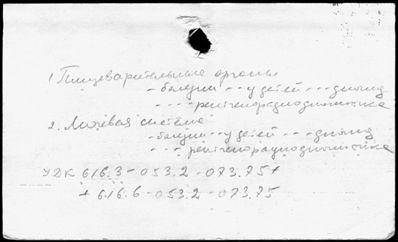 1. Пищеварительные органы
- болезни - - у детей - - - диагно
- - - - рентгенорадиодиагностика
2. Мочевая система
- болезни - - у детей - - - диагно
- - - рентгенорадиодиагностика
УДК 616.3-053.2-073.75+
+616.6-053.2-073.75